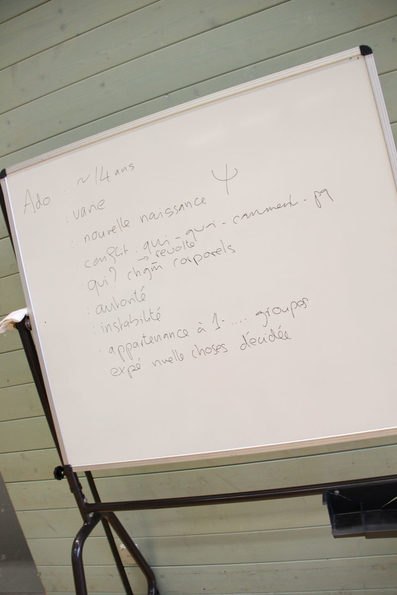 Ado : ~ 14 ans
: varie
: nouvelle naissance ψ
conflit : qui - quoi - comment - pq
→ révolte
: qui? chgm corporels
: autorité
: instabilité
: appartenance à 1 - .... groupes
expé nvelle choses décidée